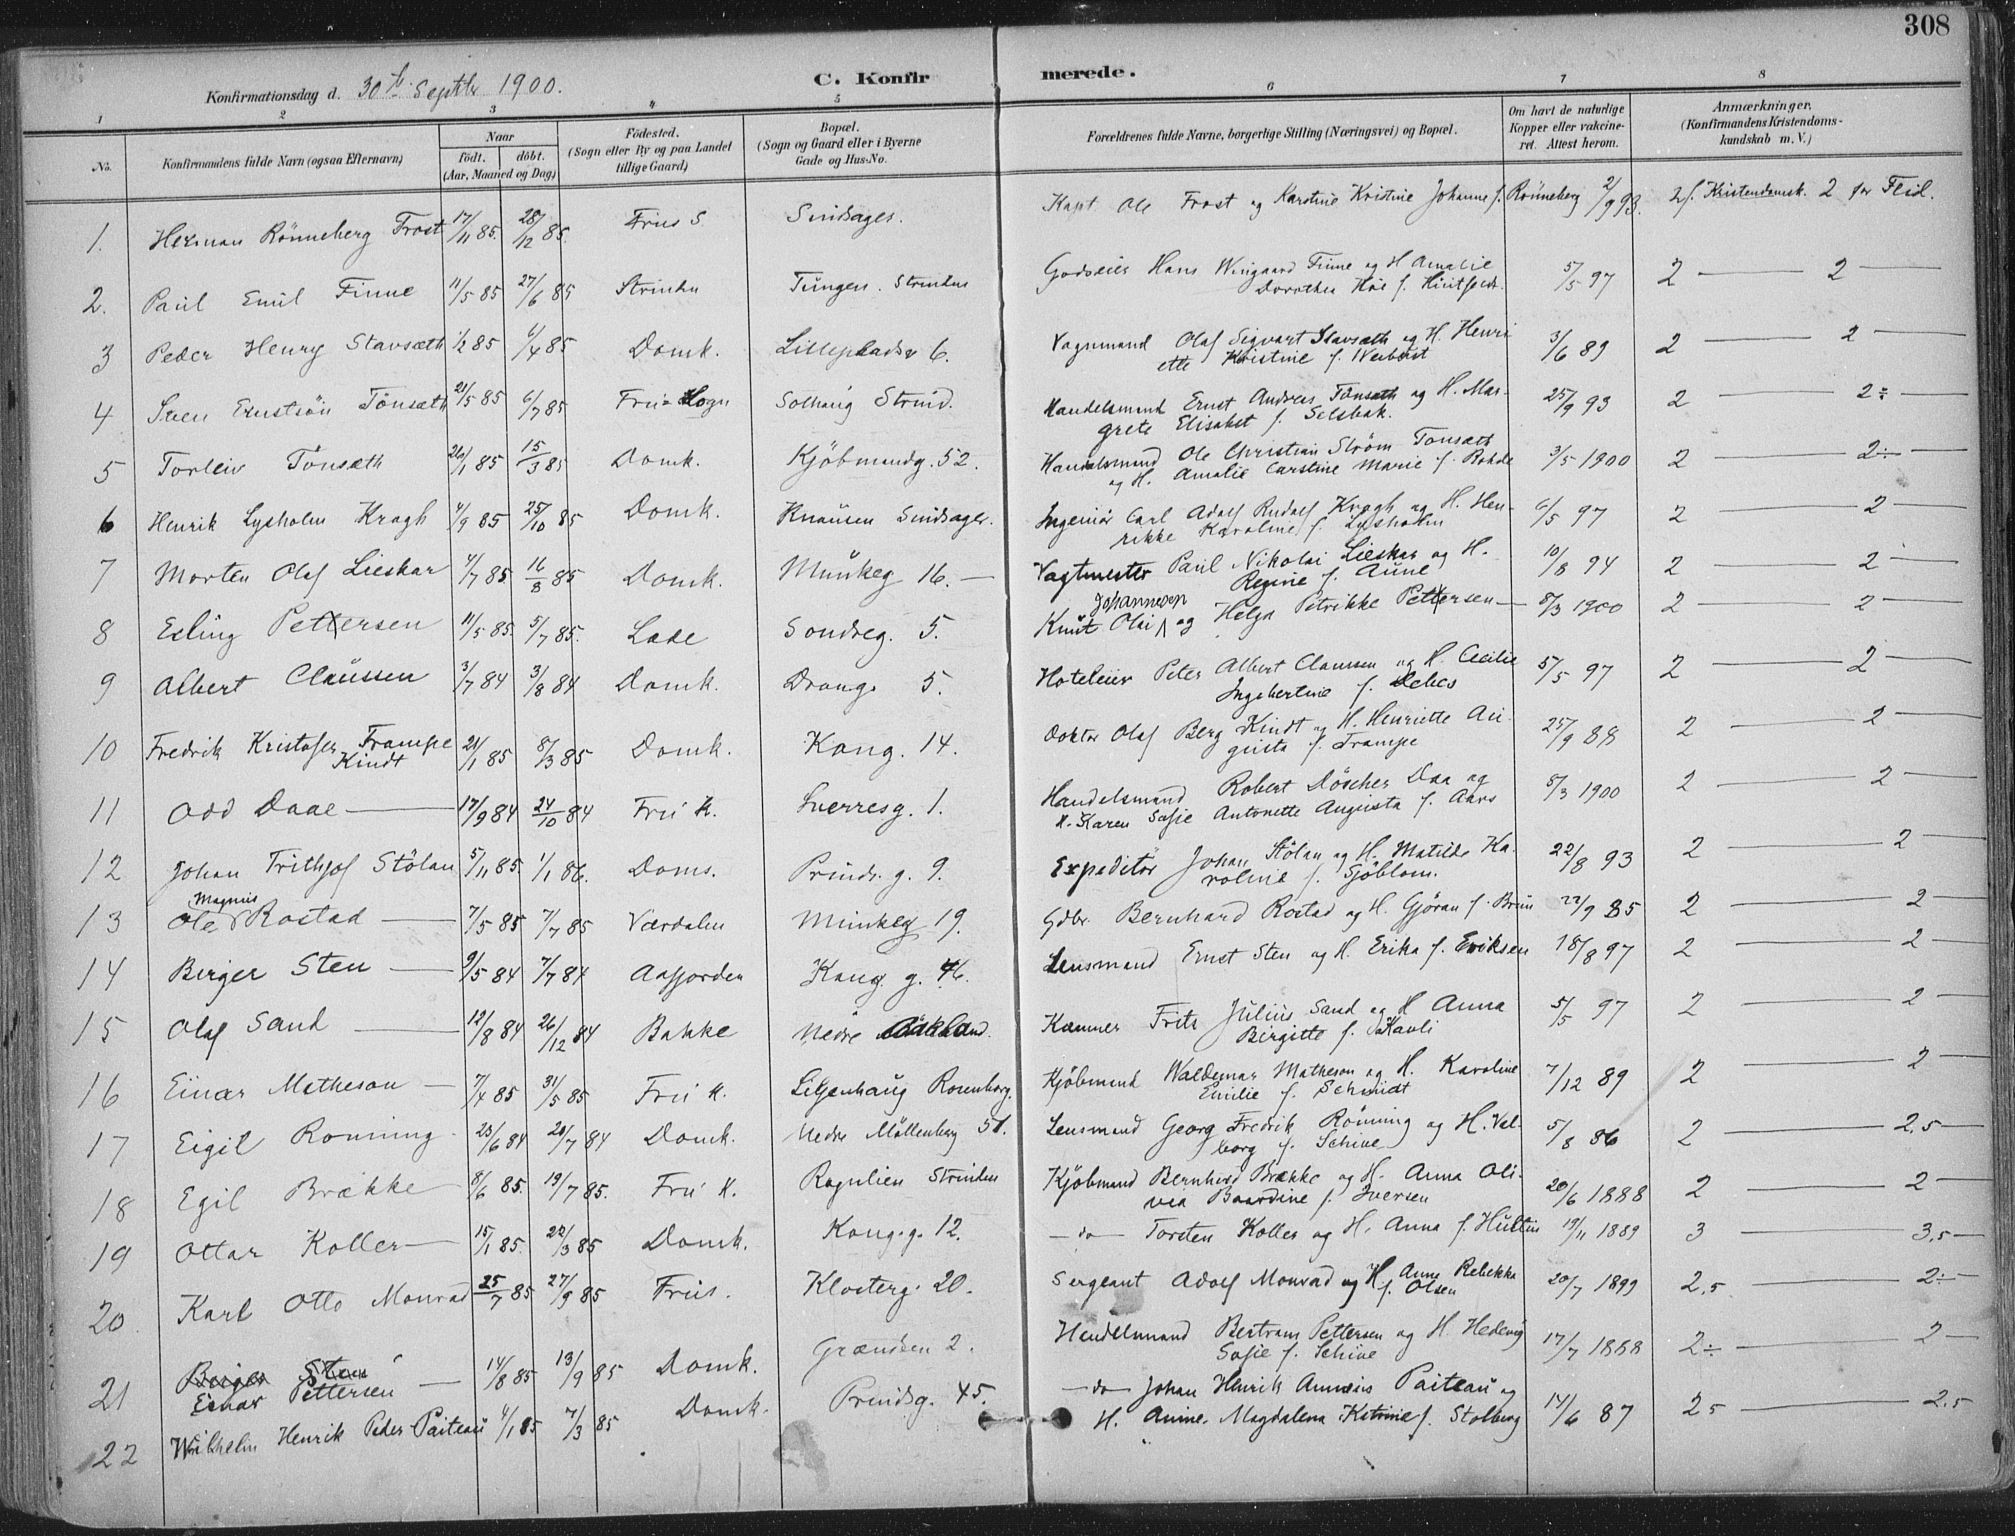 308
C. Konfirmerede.
Konfirmationsdag d. 30te Septbr 1900.
1 2 3 4 5 6 7 8
No.
Konfirmandens fulde Navn (ogsaa Efternavn)
Naar
født. døbt.
(Aar, Maaned og Dag)
Fødested.
(Sogn eller By og paa Landet
tillige Gaard)
Bopæl.
(Sogn og Gaard eller i Byerne
Gade og Hus-No.
Forældrenes fulde Navne, borgerlige Stilling (Næringsvei) og Bopæl.
Om havt de naturlige
Kopper eller vakcine-
ret. Attest herom.
Anmærkninger,
(Konfirmandens Kristendoms-
kundskab m. V.)
1. Herman Rönneberg Frost 17/11 85 28/12 85 Frue S. Sindsager. Kapt Ole Frost og Karstine Kristine Johanne f. Rönneberg 2/9 93. 2 f. Kristendomsk. 2 for Flid.
2. Paul Emil Finne 11/5 85 27/6 85 Strinden Tungen. Strinden Godseier Hans Wingaard Finne og H Amalie
Dorothea Høe f. 5/5 97 2 — 2
3 Peder Henry Stavsæth 1/2 85 6/4 85 Domk. Lillegaardsv 6. Vognmand Olaf Sigvart Stavsæth og H. Henri
ette Kristine f. 3/6 89 2 — 2
4 Sven Ernstsön Tönsæth 21/5 85 6/7 85 Frue Sogn Solhaug Strind. Handelsmand Ernst Andreas Tönsæth og H. Mar-
grete Elisabet f. Selsbak. 25/9 93 2 — 2÷
5 Torleiv Tönsæth 26/1 85 15/3 85 Domk. Kjöbmandg. 52. Handelsmand Ole Christian Strøm Tønsæth
og H. Amalie Carstine Marie f. Rohde 3/5 1900 2 — 2÷
6 Henrik Lysholm Kragh 4/9 85 25/10 85 Domk. Knausen Sindsager. Ingeniör Carl Adolf Rudolf Kragh og H. Hen-
rikke Karoline f. Lysholm 6/5 97 2 — 2
7 Morten Olaf Lieskar 4/7 85 16/8 85 Domk. Munkeg 16. — Vagtmester Paul Nikolai Lieskar og H.
Regine f. Aune 10/8 94 2 — 2
8 Esling Pettersen 11/5 85. 5/7 85. Lade Sondreg. 5. Johannesen
Knut Olai og Helga Petrikke Pettersen — 8/3 1900 2 — 2
9 Albert Claussen 3/7 84 3/8 84 Domk. Drongs 5. Hoteleier Peter Albert Claussen og H. Cecilie
Ingebertine f. Debes 5/5 97 2 — 2
10 Fredrik Kristofer Trampe
Kindt 21/1 85 8/3 85 Domk. Kong. 14. Doktor Olaf Berg Kindt og H. Henriette Au-
gusta f. Trampe 25/9 88 2 — 2
11 Odd Daae — 17/9 84 24/10 84 Frü K. Sverresg. 1. Handelsmand Robert Döscher Daa og
H. Karen Sofie Antonette Augusta f. Aars 8/3 1900 2 — 2
12 Johan Frithjof Stölan 5/11 85. 1/1 86. Doms. Prinds. g. 9. Expeditör Johan Stölan og H. Matilde Ka-
roline f. Sjöblom. 22/8 93 2 — 2
13 Magnus
Ole Rostad — 7/5 85 7/7 85 Værdalen Munkeg 19. Gdbr. Bernhard Rostad og H. Gjöran f. Brün 22/9 85 2 — 2
14 Birger Sten — 9/5 84 7/7 84 Aafjorden Kong. g. 46. Lensmand Ernst Sten og H. Erika f. Eriksen 18/8 97 2 — 2
15 Olaf Sand — 12/8 84 26/12 84 Bakke Nedre Bakland. Kæmner Fritz Julius Sand og H Anna
Birgitte f. Kavli 5/5 97 2 — 2
16 Einar Matheson — 7/4 85 31/5 85 Frü K. Liljenhaug Rosenborg. Kjöbmand Waldemar Matheson og H. Karoline
Emilie f. Schmidt 7/12 89 2 — 2
17 Eigil Ronning 23/6 84 20/7 84 Domk. Nedre Möllenberg 51. Lensmand Georg Fredrik Rönning og H. Val-
borg f. Schive 5/8 86 2 — 2.5
18 Egil Brække 8/6 85. 19/7 85. Frü K. Rognlien Strinden Kjöbmand Bernhard Brække og H. Anna Oli-
vea Baardine f. Iversen 20/6 1888 2 — 2
19 Ottar Koller — 15/1 85. 22/3 85 Domk. Kong. g. 12. — do — Torsten Koller og H. Anna f. Hultin 19/11 1889 3 — 3.5
20 Karl Otto Monrad 25/7 85 27/9 85 Frus. Klosterg. 20. Sergeant Adolf Monrad og H. Anne Rebekka
f. Olsen 20/7 1899 2.5 — 2÷
21 Birger Sten
Einar Pettersen — 14/8 85 13/9 85 Domk. Grændsen 2. Handelsmand Bertram Pettersen og H. Hedevig
Sofie f. Schive 17/7 1888 2÷ — 2
22 Wilhelm Henrik Peder Paiteau 4/1 85 7/3 85 Domk. Prindsg. 45. — do — Johan Henrik Annæus Paiteau og
H. Anine Magdalena Katrine f. Stolberg 14/6 87 2 5 — 2.5